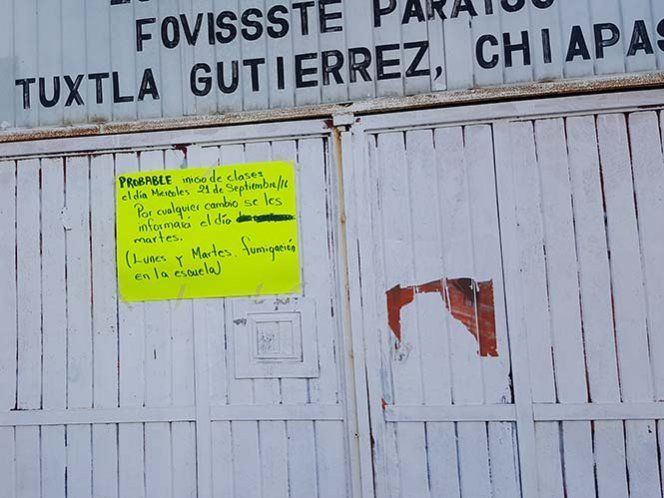 FOVISSSTE PARAISO
TUXTLA GUTIERREZ, CHIAPAS
PROBABLE inicio de clases
el día Miercoles 21 de Septiembre/16
Por cualquier cambio se les
informará el día
martes.
(Lunes y Martes. fumigación
en la escuela)